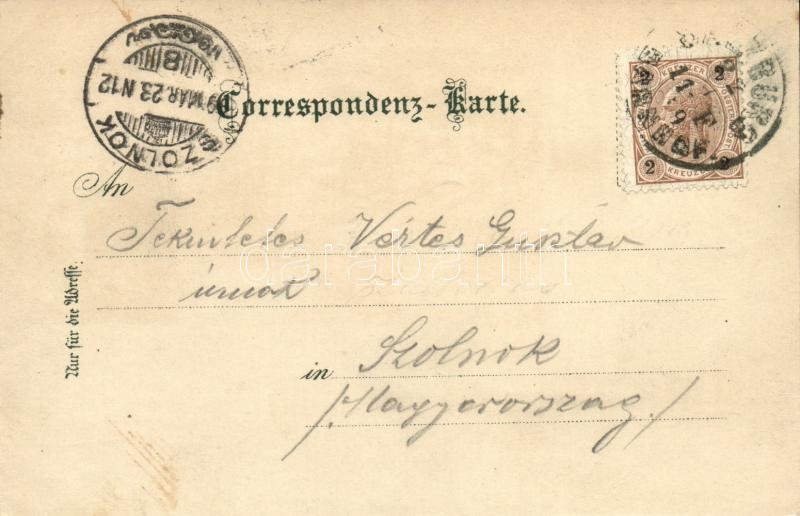 Correspondenz-Karte.
An
Tekintetes Vértes Gusztáv
úrnak
in Szolnok
/Magyarország/
Nur für die Adresse.
SZOLNOK
MAR. 23. N12
B
2 KREUZER 2
2 KREUZER 2
darabanth